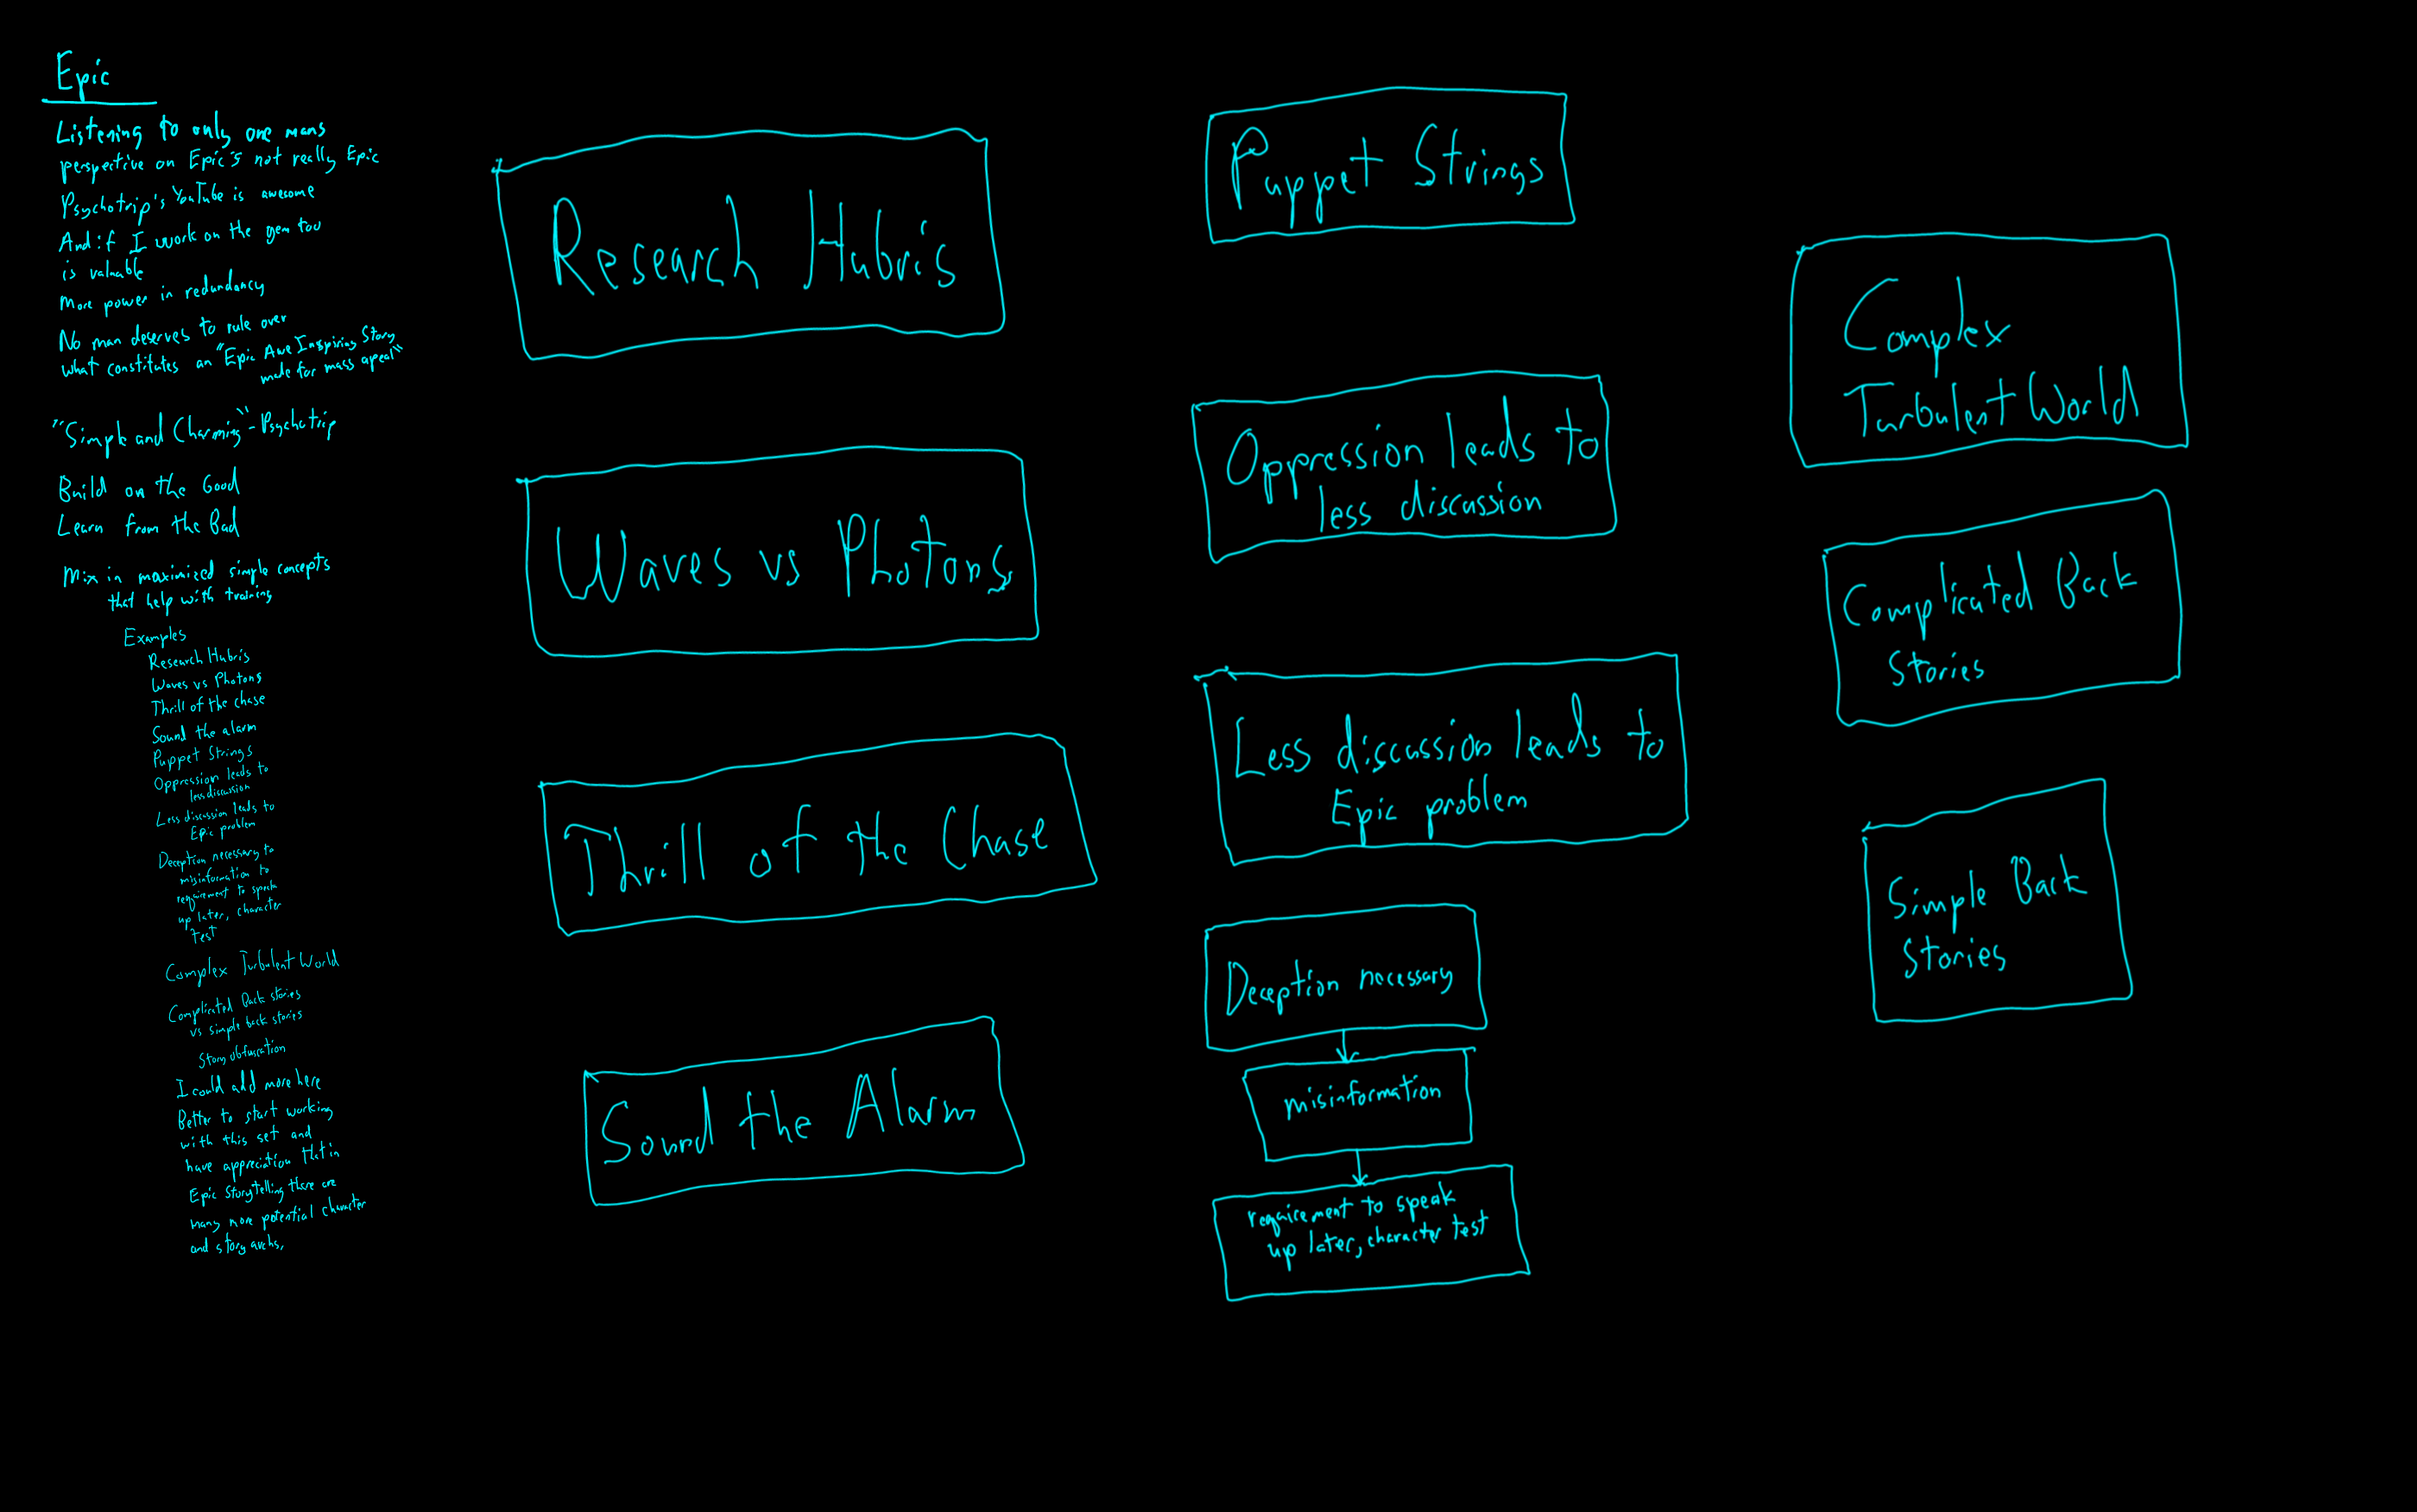 Epic
Listening to only one mans
perspective on Epic's not really Epic
Psychotrip's YouTube is awesome
And if I work on the gem too
is valuable
More power in redundancy
No man deserves to rule over
what constitutes an "Epic Awe Inspiring Story
made for mass apeal"
"Simple and Charming" - Psychotrip
Build on the Good
Learn from the Bad
Mix in maximized simple concepts
that help with training
Examples
Research Hubris
Waves vs Photons
Thrill of the chase
Sound the alarm
Puppet Strings
Oppression leads to
less discussion
Less discussion leads to
Epic problem
Deception necessary to
misinformation to
requirement to speak
up later, character
test
Complex Turbulent World
Complicated Back stories
vs simple back stories
Story obfuscation
I could add more here
Better to start working
with this set and
have appreciation that in
Epic Storytelling there are
many more potential character
and story archs.
Research Hubris
Waves vs Photons
Thrill of the Chase
Sound the Alarm
Puppet Strings
Oppression leads to
less discussion
Less discussion leads to
Epic problem
Deception necessary
misinformation
requirement to speak
up later, character test
Complex
Turbulent World
Complicated Back
Stories
Simple Back
Stories